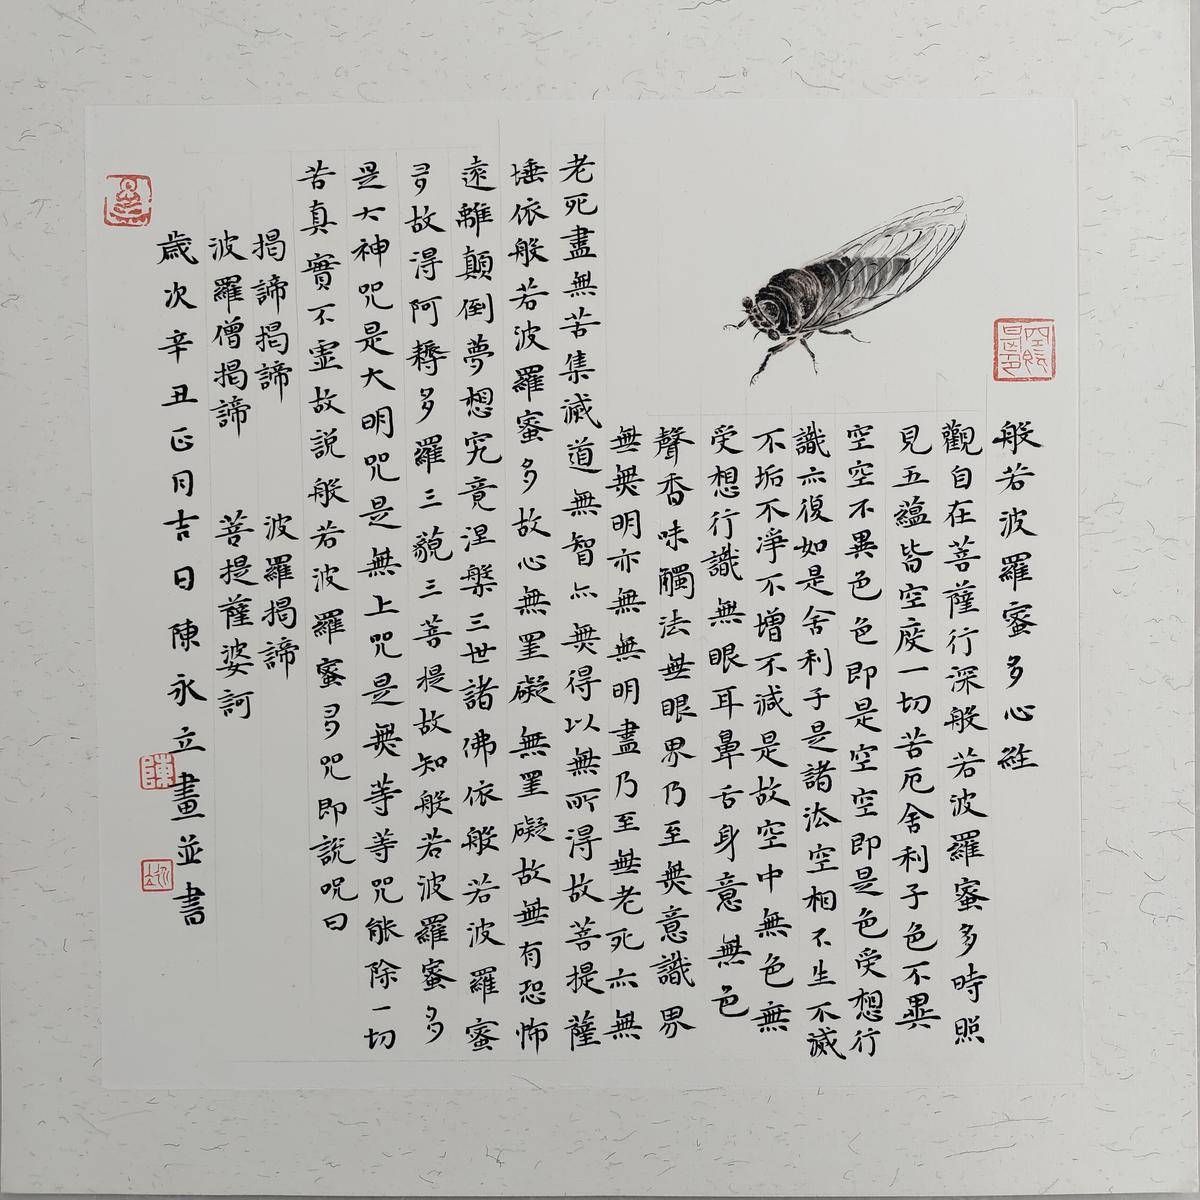 般若波羅蜜多心經
觀自在菩薩行深般若波羅蜜多時照
見五蘊皆空度一切苦厄舍利子色不異
空空不異色色即是空空即是色受想行
識亦復如是舍利子是諸法空相不生不滅
不垢不淨不增不減是故空中無色無
受想行識無眼耳鼻舌身意無色
聲香味觸法無眼界乃至無意識界
無無明亦無無明盡乃至無老死亦無
老死盡無苦集滅道無智亦無得以無所得故菩提薩
埵依般若波羅蜜多故心無罣礙無罣礙故無有恐怖
遠離顛倒夢想究竟涅槃三世諸佛依般若波羅蜜
多故得阿耨多羅三藐三菩提故知般若波羅蜜多
是大神咒是大明咒是無上咒是無等等咒能除一切
苦真實不虛故說般若波羅蜜多咒即說呪曰
揭諦揭諦 波羅揭諦
波羅僧揭諦 菩提薩婆訶
歲次辛丑正月吉日陳永立畫並書
陳
永立